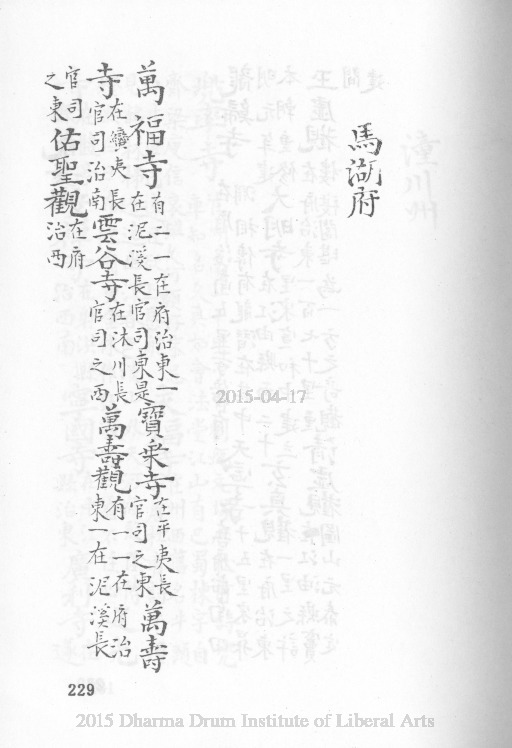 馬湖府
萬福寺有二一在府治東一在泥溪長官司東是寶乘寺在平夷長官司之東萬壽
寺在蠻夷長官司治南雲谷寺在沐川長官司之西萬壽觀有一一在府治東一在泥溪長
官司之東佑聖觀在府治西
2015-04-17
229
2015 Dharma Drum Institute of Liberal Arts